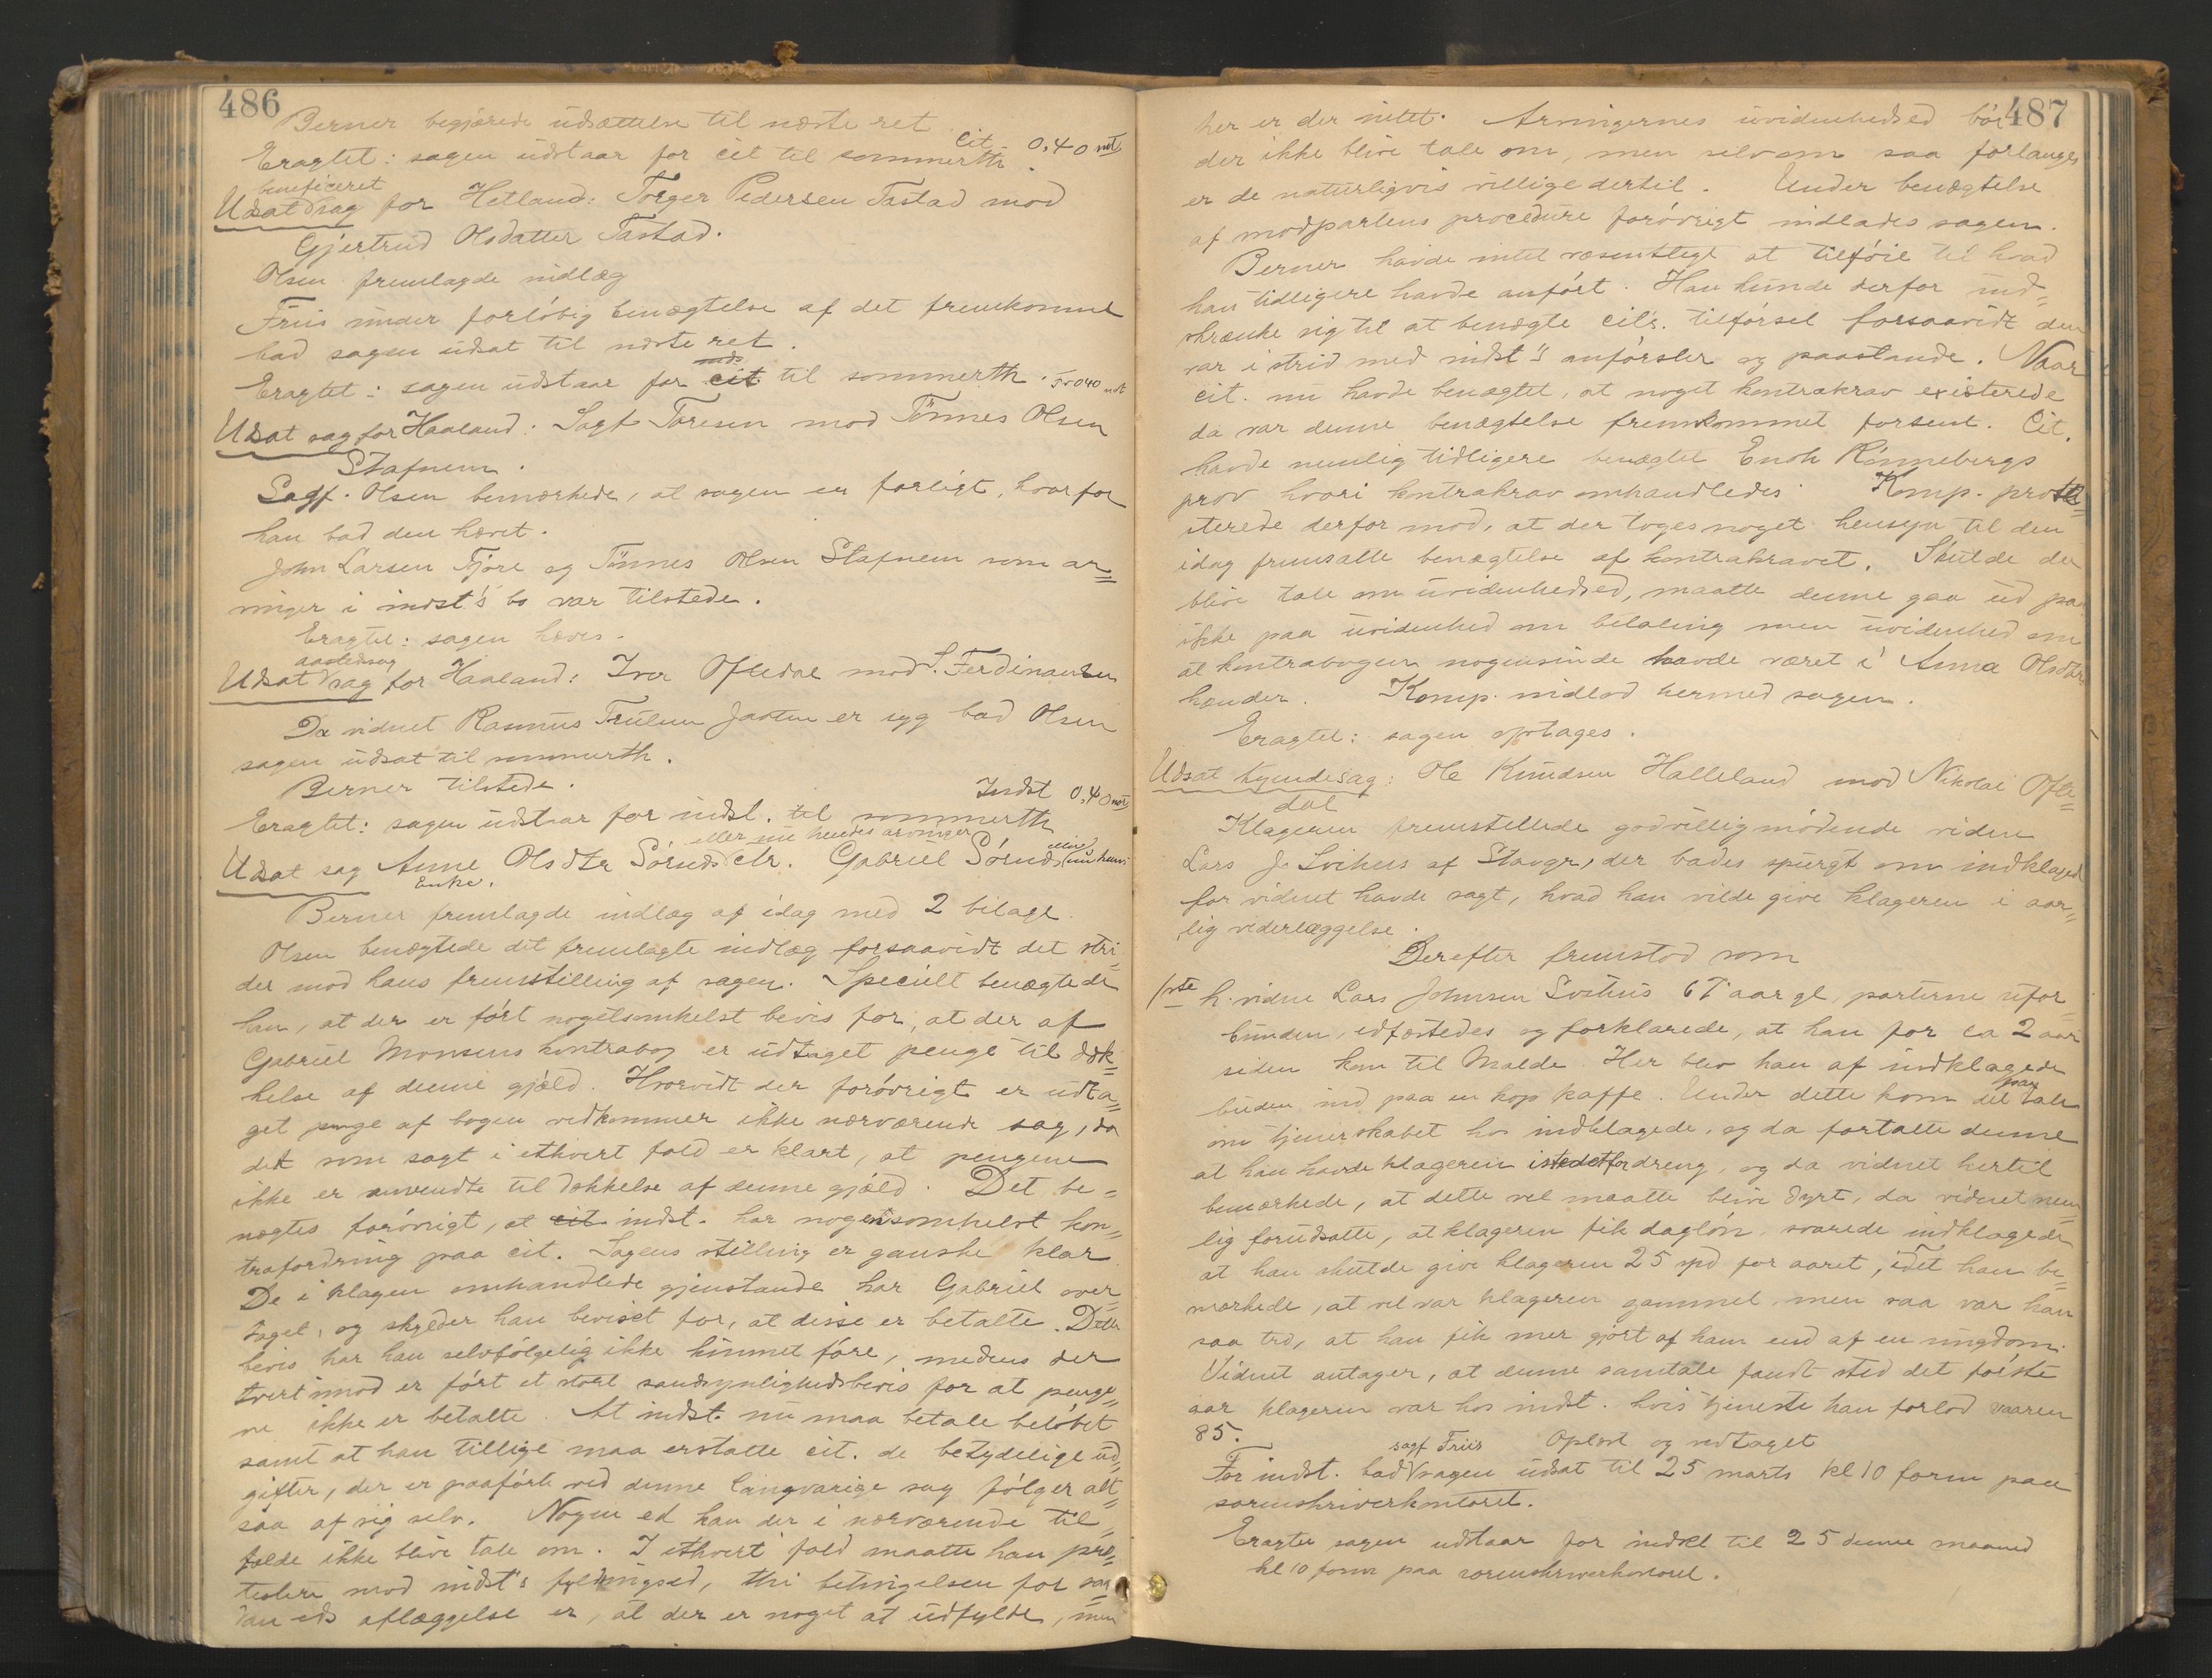 486
Berner begjærede udsættelse til næste ret
Eragtet: sagen udstaar for cit til sommerth. Cit 0,40 ndt
Udsat beneficeret sag for Hetland: Torger Pedersen Tastad mod
Gjertrud Olsdatter Tastad.
Olsen fremlagde indlæg
Friis under forløbig benægtelse af det fremkomne
bad sagen udsat til næste ret.
Eragtet: sagen udstaar for cit til sommerth. Fr 040 ndt
Udsat sag for Haaland: Sagf Toresen mod Tønnes Olsen
Stafnem.
Sagf. Olsen bemærkede, at sagen er forligt, hvorfor
han bad den hævet.
John Larsen Tjøre og Tønnes Olsen Stafnem som ar=
vinger i indst's bo var tilstede.
Eragtet: sagen hæves.
Udsat aastedssag sag for Haaland: Iver Oftedal mod S. Ferdinansen
Da vidnet Rasmus Trulsen Jaatten er syg bad Olsen
sagen udsat til sommerth.
Berner tilstede.
Eragtet: sagen udstaar for indst. til sommerth Indst 0,40 ndt
Udsat sag Anne Olsdtr Sørnds Enke. eller nu hendes arvinger ctr. Gabriel Sørnds eller nu hans
Berner fremlagde indlæg af idag med 2 bilage.
Olsen benægtede det fremlagte indlæg forsaavidt det stri=
der mod hans fremstilling af sagen. Specielt benægtede
han, at der er ført nogetsomhelst bevis for, at der af
Gabriel Monsens kontrabog er udtaget penge til dæk=
kelse af denne gjæld. Hvorvidt der forøvrigt er udta=
get penge af bogen vedkommer ikke nærværende sag, da
det som sagt i ethvert fald er klart, at pengene
ikke er anvendte til dækkelse af denne gjæld. Det be=
nægtes forøvrigt, at cit indst. har nogensomhelst kon=
trafordring paa cit. Sagens stilling er ganske klar
De i klagen omhandlede gjenstande har Gabriel over=
taget, og skylder han beviset for, at disse er betalte. Dette
bevis har han selvfølgelig ikke kunnet føre, medens der
tvertimod er ført et stort sandsynlighedsbevis for at penge=
ne ikke er betalte. At indst. nu maa betale beløbet
samt at han tillige maa erstatte cit. de betydelige ud=
gifter, der er paaførte ved denne langvarige sag følger alt=
saa af sig selv. Nogen ed kan der i nærværende til=
fælde ikke blive tale om. I ethvert fald maatte han pro=
testere mod indst's fyldningsed, thi betingelsen for saa
dan eds aflæggelse er, at der er noget at udfylde, men
487
her er der intet. Arvingernes uvidenhedsed bør
der ikke blive tale om, men selv om saa forlanges
er de naturligvis villige dertil. Under benægtelse
af modpartens procedure forøvrigt indlades sagen.
Berner havde intet væsentligt at tilføie til hvad
han tidligere havde anført. Han kunde derfor ind=
skrænke sig til at benægte cit's. tilførsel forsaavidt den
var i strid med indst's anførsler og paastande. Naar
cit. nu havde benægtet, at noget kontrakrav existerede
da var denne benægtelse fremkommet forsent. Cit.
havde nemlig tidligere benægtet Enok Rønnebergs
prov hvori kontrakrav omhandledes. Komp. prote=
sterede derfor mod, at der toges noget hensyn til den
idag fremsatte benægtelse af kontrakravet. Skulde der
blive tale om uvidenhedsed, maatte denne gaa ud paa
ikke paa uvidenhed om betaling men uvidenhed om
at kontrabogen nogensinde havde været i Anna Olsdtrs
hænder. Komp. indlod hermed sagen.
Eragtet: sagen optages.
Udsat hyndesag: Ole Knudsen Halleland mod Nikolai Ofte=
dal
Klageren fremstillede godvillig mødende vidne
Lars J. Svihus af Stavgr, der bades spurgt om indklagede
for vidnet havde sagt, hvad han vilde give klageren i aar=
lig vederlæggelse.
Derefter fremstod som
1ste h. vidne Lars Johnsen Svihus 67 aar gl, parterne ufor=
bunden, edfæstedes og forklarede, at han for ca 2 aar
siden kom til Malde. Her blev han af indklagede
buden ind paa en kop kaffe. Under dette kom det paa tale
om tjenerskabet hos indklagede, og da fortalte denne
at han havde klageren istedetfor dreng, og da vidnet hertil
bemærkede, at dette vel maatte blive dyrt, da vidnet nem=
lig forudsatte, at klageren fik dagløn, svarede indklagede
at han skulde give klageren 25 spd for aaret, idet han be=
mærkede, at vel var klageren gammel, men saa var han
saa tro, at han fik mer gjort af ham end af en ungdom.
Vidnet antager, at denne samtale fandt sted det første
aar klageren var hos indst. hvis tjeneste han forlod vaaren
85. Oplæst og vedtaget
For indst. bad sagf Friis sagen udsat til 25 marts kl 10 form paa
sorenskriverkontoret.
Eragtet sagen udstaar for indkl til 25 denne maaned
kl 10 form paa sorenskriverkontoret.